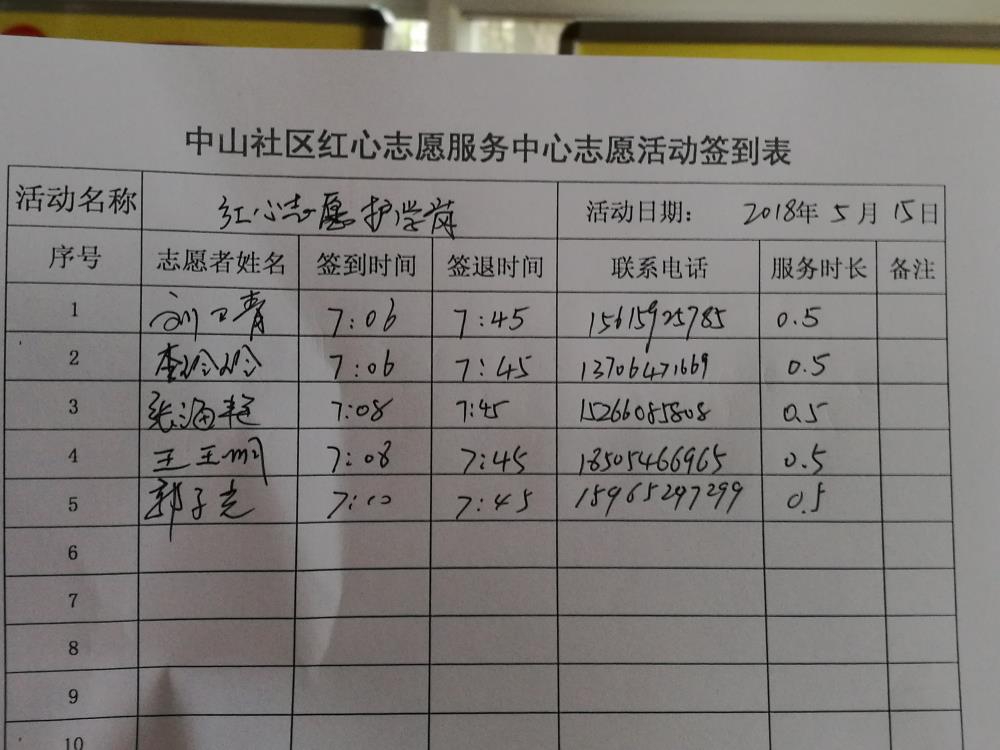 中山社区红心志愿服务中心志愿活动签到表
活动名称 红心志愿护学岗 活动日期: 2018年5月15日
序号 志愿者姓名 签到时间 签退时间 联系电话 服务时长 备注
1 刘卫青 7:06 7:45 15615925785 0.5
2 李玲玲 7:06 7:45 13706471669 0.5
3 张海艳 7:08 7:45 15266085808 0.5
4 王玉 7:08 7:45 18505466965 0.5
5 郭子光 7:10 7:45 15965297299 0.5
6
7
8
9
10